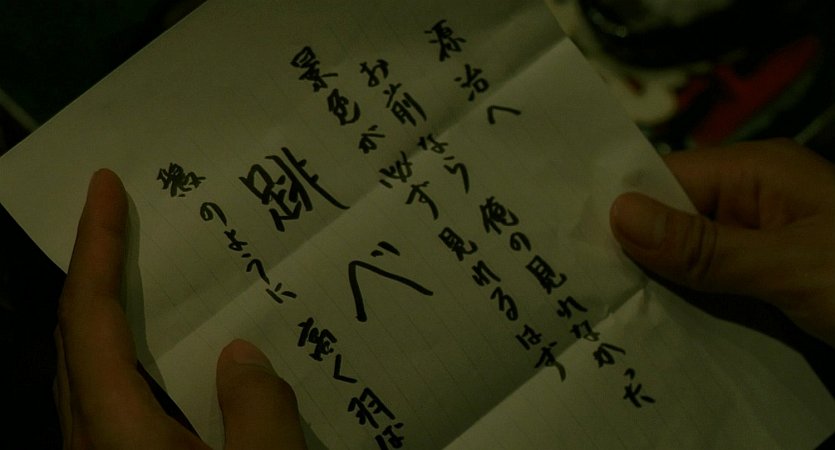 源治へ
お前なら 俺の見れなかった
景色が必ず 見れるはず
跳べ
鴉のように 高く羽ば